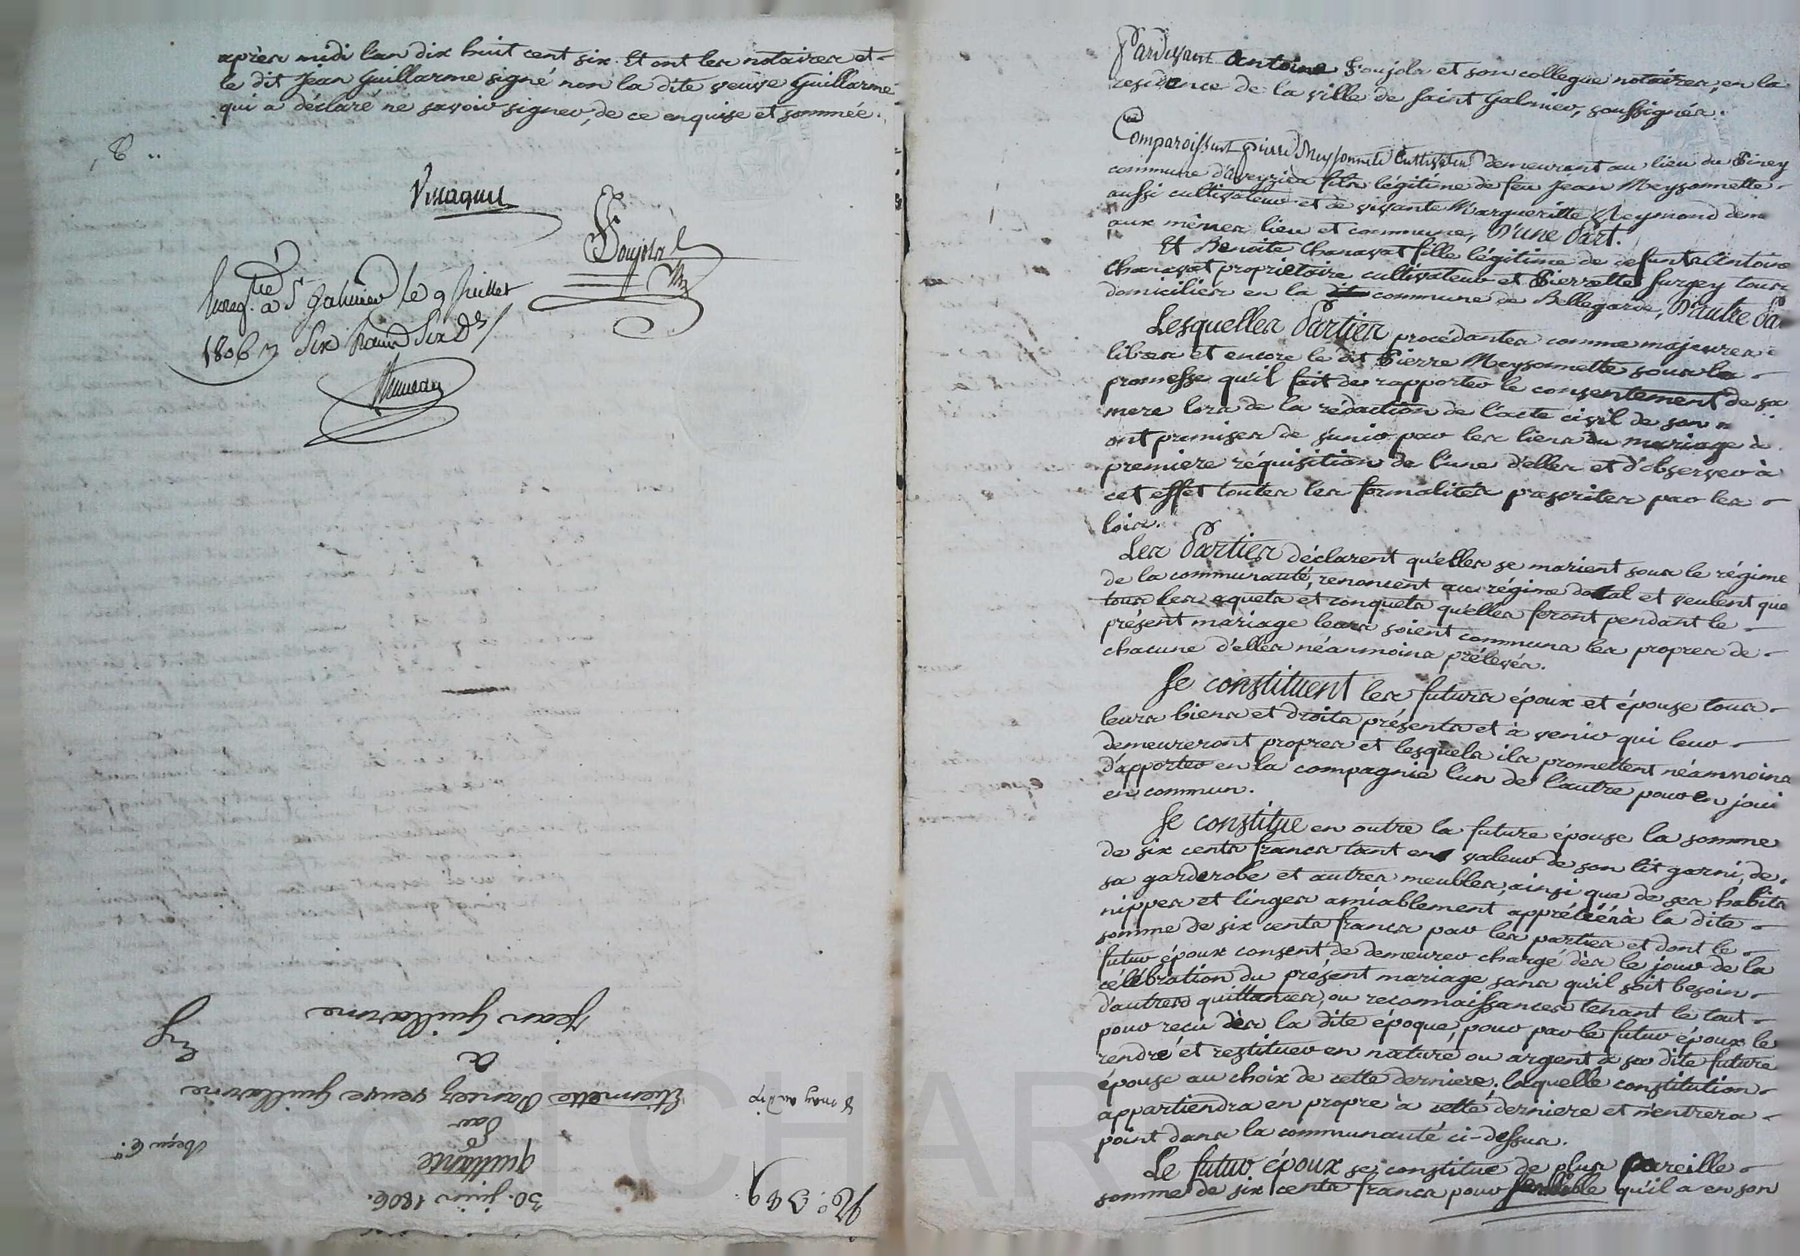 après midi l'an dix huit cent six. Et ont les notaires et
le dit Jean Guillarme signé non la dite veuve Guillarme
qui a déclaré ne savoir signer, de ce enquise et sommée.
Soujola
Enreg.tré à St Galmier le 9 Juillet
1806
30. juin 1806.
quittance
Par
Etiennette veuve Guillarme
a
Jean Guillarme
No. 349.
Pardevant Antoine Soujola et son collegue notaires, en la
residence de la ville de Saint Galmier, soussignés.
Comparoissent pierre Meysonnette Cultivateur demeurant au lieu du Piney
commune d'aveyzieu fils légitime de feu Jean Meysonnette
aussi cultivateur et de vivante Marguerite Reymond dem
aux mêmes lieu et commune, D'une Part.
Et Benoite Chanavat fille légitime de defunts Antoine
Chanavat proprietaire cultivateur et Pierrette furgey tous
domiciliés en la commune de Bellegarde, D'autre Pa
Lesquelles Parties procédantes comme majeures
libres et encore le dit Pierre Meysonnette sous la
promesse qu'il fait de rapporter le consentement de sa
mere lors de la rédaction de l'acte civil de son
ont promises de s'unir par les liens du mariage à
premiere réquisition de l'une d'elles et d'observer à
cet effet toutes les formalités prescrites par les
lois.
Les Parties déclarent qu'elles se marient sous le régime
de la communauté, renoncent au régime dotal et veulent que
tous les aquets et conquets qu'elles feront pendant le
présent mariage leurs soient communs les propres de
chacune d'elles néanmoins prélevés.
Se constituent les futurs époux et épouse tous
leurs biens et droits présents et à venir qui leur
demeureront propres et lesquels ils promettent néamnoins
d'apporter en la compagnie l'un de l'autre pour en jouir
en commun.
Se constitue en outre la future épouse la somme
de six cents francs tant en valeur de son lit garni, de
sa garderobe et autres meubles, ainsi que de ses habits
nippes et linges amiablement appréciés à la dite
somme de six cents francs par les parties et dont le
futur époux consent de demeurer chargé dès le jour de la
célébration du présent mariage sans qu'il soit besoin
d'autres quittances, ou reconnaissances tenant le tout
pour reçu dès la dite époque, pour par le futur époux le
rendre et restituer en nature ou argent à sa dite future
épouse au choix de cette derniere. laquelle constitution
appartiendra en propre à cette derniere et n'entrera
point dans la communauté ci-dessus.
Le futur époux se constitue de plus pareille
somme de six cents francs pour qu'il a en son